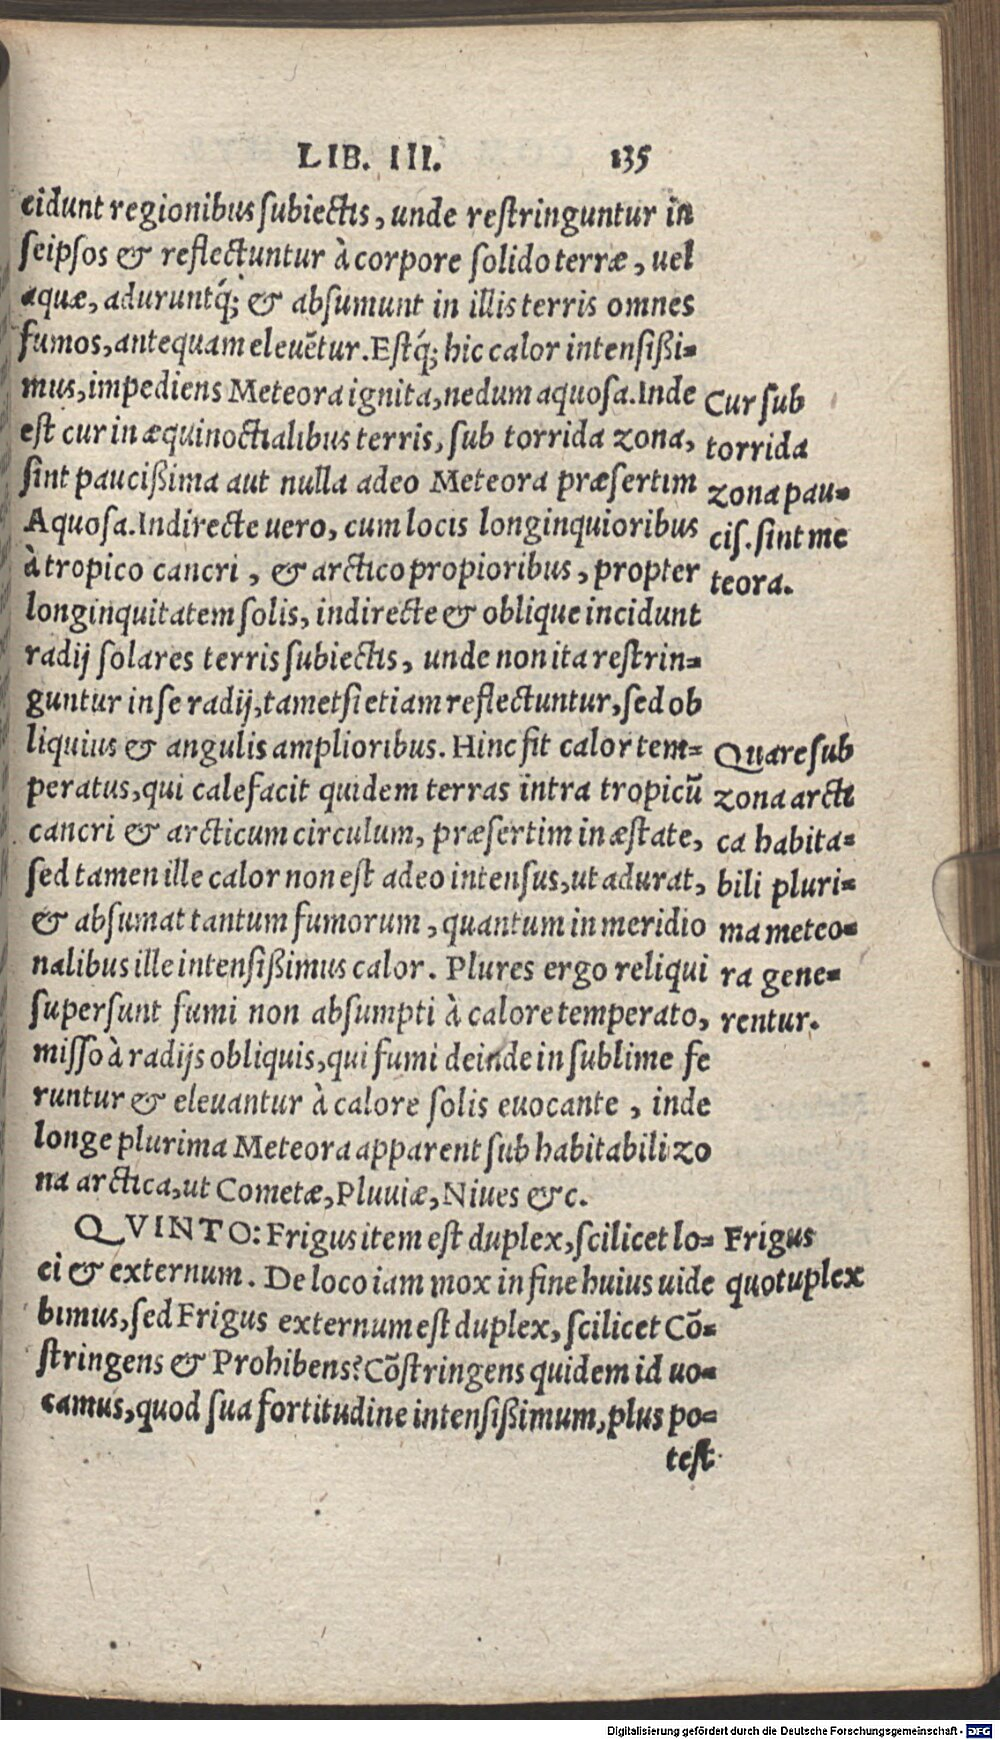 LIB. III. 135
cidunt regionibus ſubiectis, unde reſtringuntur in
ſeipſos & reflectuntur à corpore ſolido terræ, uel
aquæ, aduruntq́; & abſumunt in illis terris omnes
fumos, antequam eleuẽtur. Eſtq́; hic calor intenſißi=
mus, impediens Meteora ignita, nedum aquoſa. Inde
eſt cur in æquinoctialibus terris, ſub torrida zona,
ſint pauciſſima aut nulla adeo Meteora præſertim
Aquoſa. Indirecte uero, cum locis longinquioribus
à tropico cancri, & arctico propioribus, propter
longinquitatem ſolis, indirecte & oblique incidunt
radij ſolares terris ſubiectis, unde non ita reſtrin=
guntur in ſe radij, tametſi etiam reflectuntur, ſed ob
liquius & angulis amplioribus. Hinc fit calor tem=
peratus, qui calefacit quidem terras intra tropicũ
cancri & arcticum circulum, præſertim in æſtate,
ſed tamen ille calor non eſt adeo intenſus, ut adurat,
& abſumat tantum fumorum, quantum in meridio
nalibus ille intenſißimus calor. Plures ergo reliqui
ſuperſunt fumi non abſumpti à calore temperato,
miſſo à radijs obliquis, qui fumi deinde in ſublime fe
runtur & eleuantur à calore ſolis euocante, inde
longe plurima Meteora apparent ſub habitabili zo
na arctica, ut Cometæ, Pluuiæ, Niues &c.
QVINTO: Frigus item eſt duplex, ſcilicet lo=
ci & externum. De loco iam mox in fine huius uide
bimus, ſed Frigus externum eſt duplex, ſcilicet Cõ=
ſtringens & Prohibens? Cõſtringens quidem id uo=
camus, quod ſua fortitudine intenſißimum, plus po=
teſt
Cur ſub
torrida
zona pau=
ciſ. ſint me
teora.
Quare ſub
zona arcti
ca habita=
bili pluri=
ma meteo=
ra gene=
rentur.
Frigus
quotuplex
Digitalisierung gefördert durch die Deutsche Forschungsgemeinschaft - DFG